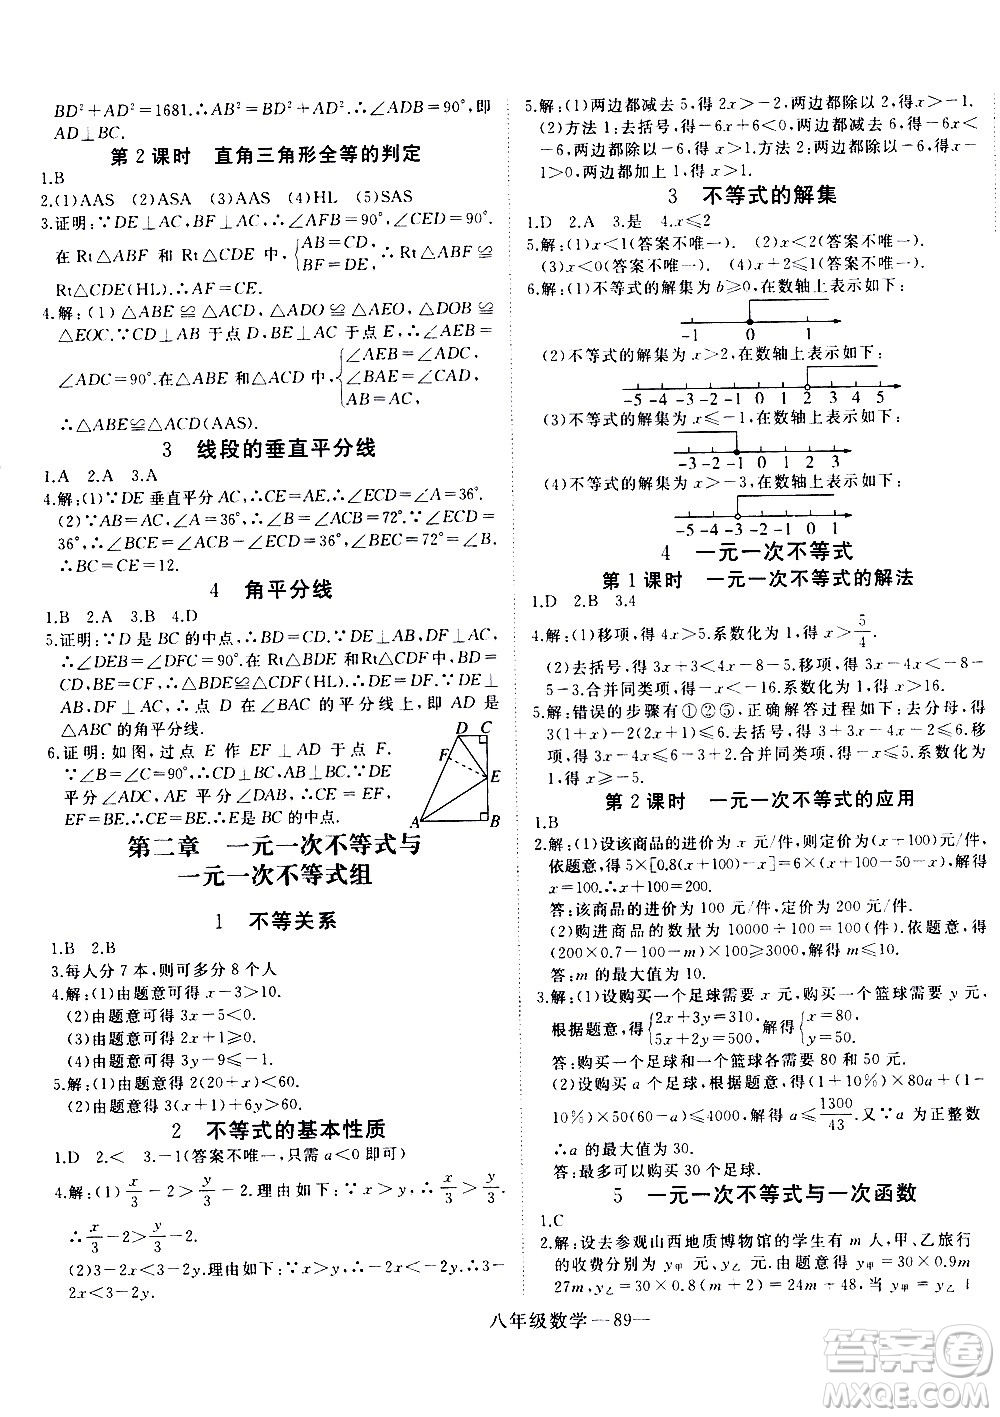 BD²+AD²=1681.∴AB²=BD²+AD².∴∠ADB=90°,即
AD⊥BC.
第2课时 直角三角形全等的判定
1.B
2.(1)AAS (2)ASA (3)AAS (4)HL (5)SAS
3.证明:∵DE⊥AC,BF⊥AC,∴∠AFB=90°,∠CED=90°.
在Rt△ABF和Rt△CDE中,{AB=CD, BF=DE,∴Rt△ABF≌
Rt△CDE(HL).∴AF=CE.
4.解:(1)△ABE≌△ACD,△ADO≌△AEO,△DOB≌
△EOC.∵CD⊥AB于点D,BE⊥AC于点E,∴∠AEB=
∠ADC=90°.在△ABE和△ACD中,{∠AEB=∠ADC, ∠BAE=∠CAD, AB=AC,
∴△ABE≌△ACD(AAS).
3 线段的垂直平分线
1.A 2.A 3.A
4.解:(1)∵DE垂直平分AC,∴CE=AE.∴∠ECD=∠A=36°.
(2)∵AB=AC,∠A=36°,∴∠B=∠ACB=72°.∵∠ECD=
36°,∴∠BCE=∠ACB-∠ECD=36°,∠BEC=72°=∠B.
∴BC=CE=12.
4 角平分线
1.B 2.A 3.B 4.D
5.证明:∵D是BC的中点,∴BD=CD.∵DE⊥AB,DF⊥AC,
∴∠DEB=∠DFC=90°.在Rt△BDE和Rt△CDF中,
∴△BDE≌△CDF(HL).∴DE=DF.∵DE⊥AB,DF⊥
AC,∴点D在∠BAC的平分线上,即AD是
△ABC的角平分线.
6.证明:如图,过点E作EF⊥AD于点F.
∵∠B=∠C=90°,∴CD⊥BC,AB⊥BC.∵DE
平分∠ADC,AE平分∠DAB,∴CE=EF,
EF=BE.∴CE=BE.
D C
F
E
A B
第二章 一元一次不等式与
一元一次不等式组
1 不等关系
1.B 2.B
3.每人分7本,则可多分8个人
4.解:(1)由题意可得x-3>10.
(2)由题意可得3x-5<0.
(3)由题意可得2x+1≥0.
(4)由题意可得3y-9≤-1.
5.解:(1)由题意得2(20+x)<60.
(2)由题意得3(x+1)+6>24.
2 不等式的基本性质
1.D 2.< 3.-1(答案不唯一,只需a<0即可)
4.解:(1)x/3-2>y/3-2.理由如下:∵x>y,∴x/3>y/3.
∴x/3-2>y/3-2.
(2)3-2x<3-2y.理由如下:∵x>y,∴-2x<-2y.∴3-
2x<3-2y.
5.解:(1)两边都减去5,得2x>-2,两边都除以2,得x>-1.
(2)方法1:去括号,得-6x+6>-12,两边都减去6,得
-6x>-18,两边都除以-6,得x<3.方法2:两边都除以
-6,得x-1<2,两边都加1,得x<3.
3 不等式的解集
1.D 2.A 3.是 4.x≤2
5.解:(1)x<1(答案不唯一). (2)x<2(答案不唯一).
(3)x<0(答案不唯一). (4)x+2≤1(答案不唯一).
6.解:(1)不等式的解集为b≥0,在数轴上表示如下:
-1 0 1
(2)不等式的解集为x>2,在数轴上表示如下:
-5 -4 -3 -2 -1 0 1 2 3 4 5
(3)不等式的解集为x≤-1,在数轴上表示如下:
-3 -2 -1 0 1 2 3
(4)不等式的解集为x>-3,在数轴上表示如下:
-5 -4 -3 -2 -1 0 1
4 一元一次不等式
第1课时 一元一次不等式的解法
1.D 2.B 3.4
4.解:(1)移项,得4x>5.系数化为1,得x>5/4.
(2)去括号,得3x+3<4x-8-5.移项,得3x-4x<-8-
5-3.合并同类项,得-x<-16.系数化为1,得x>16.
5.解:错误的步骤有①②⑤,正确解答过程如下:去分母,得
3(1+x)-2(2x+1)≤6.去括号,得3+3x-4x-2≤6.移
项,得3x-4x≤6-3+2.合并同类项,得-x≤5.系数化为
1,得x≥-5.
第2课时 一元一次不等式的应用
1.B
2.解:(1)设该商品的进价为x元/件,则定价为(x+100)元/件,
依题意,得5×[0.8(x+100)-x]=6×(x+100-50-x),解得
x=100.∴x+100=200.
答:该商品的进价为100元/件,定价为200元/件.
(2)购进商品的数量为10000÷100=100(件).依题意,得
(200×0.7-100)(100-m)≥3000,解得m≤10.
答:m的最大值为10.
3.解:(1)设购买一个足球需要x元,购买一个篮球需要y元,
根据题意,得{2x+3y=310, 5x+2y=500,解得{x=80, y=50.
答:购买一个足球和一个篮球各需要80和50元.
(2)设购买a个足球,根据题意,得80×(1+10%)a+50×(1-
10%)×(50-a)≤4000,解得a≤1300/43.又∵a为正整数,
∴a的最大值为30.
答:最多可以购买30个足球.
5 一元一次不等式与一次函数
1.C
2.解:设去参观山西地质博物馆的学生有m人,甲、乙旅行
社的收费分别为y甲元,y乙元,则y甲=30×0.9m=
27m,y乙=30×0.8(m+2)=24m+48,当y甲=y乙
八年级数学 —89—
答案圈
MXQE.COM